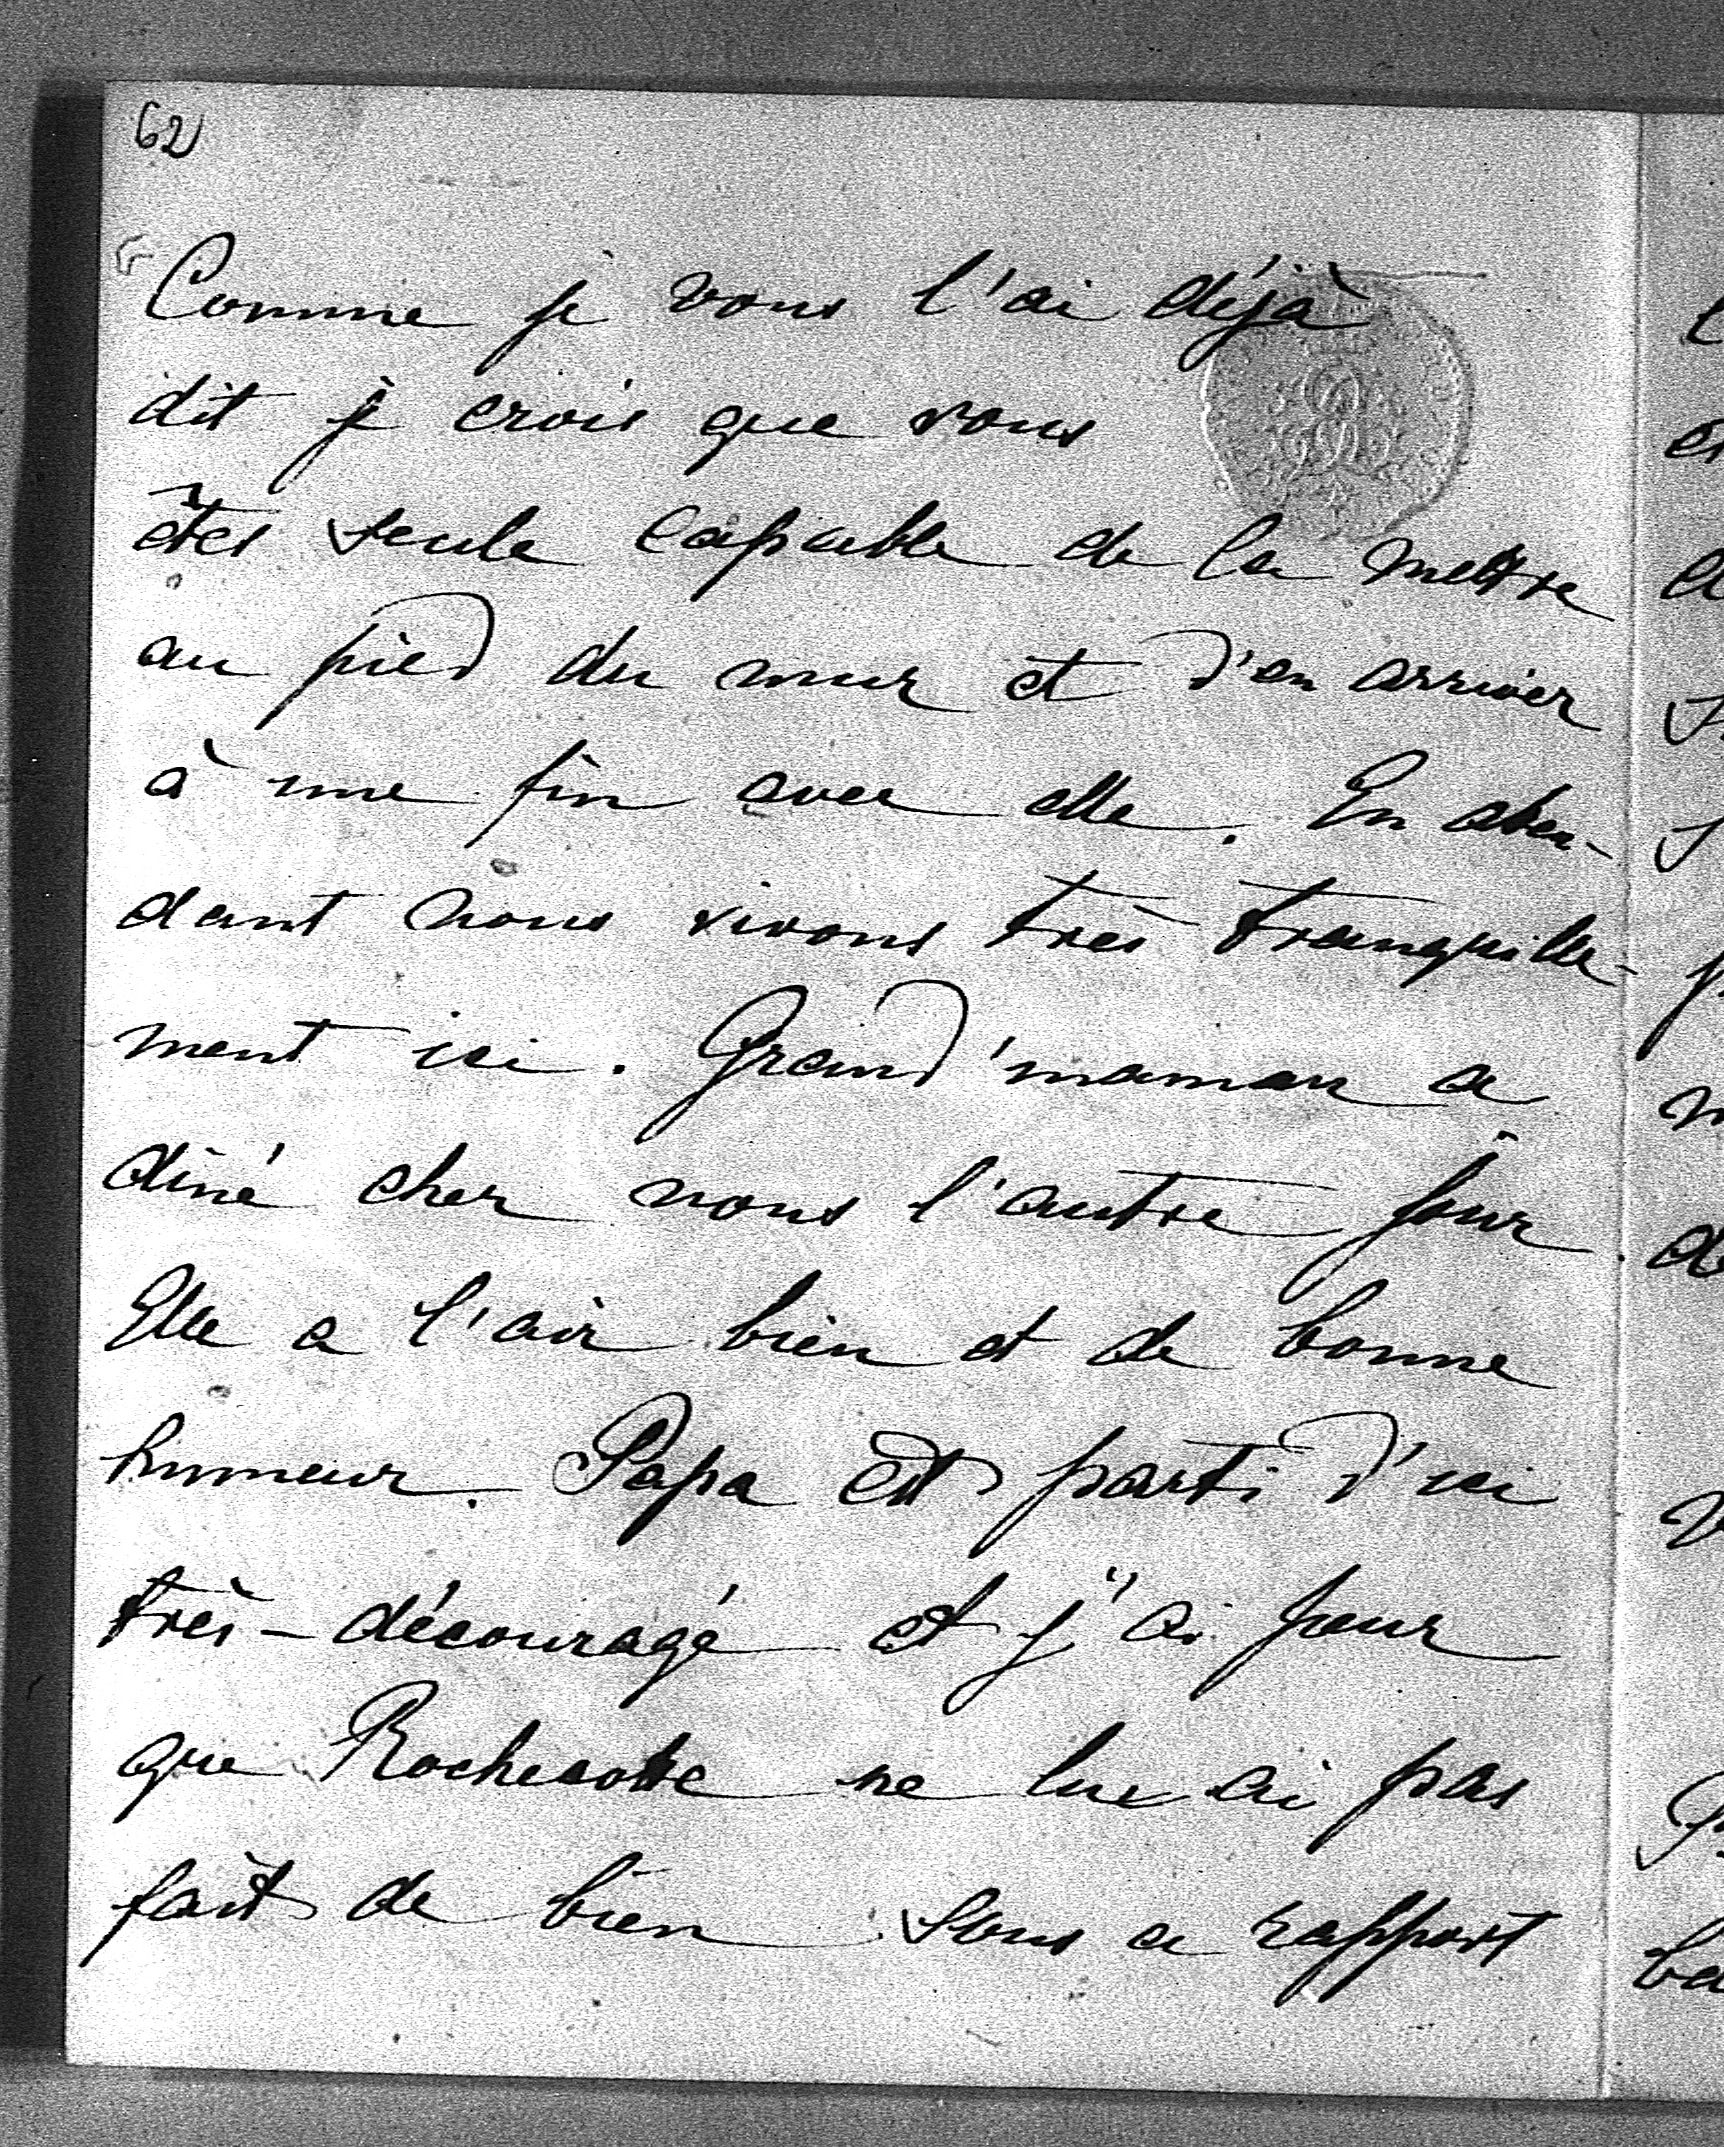 62
Comme je vous l'ai déjà
dit je crois que vous
êtes seule capable de la mettre
au pied du mur et d'en arriver
à une fin avec elle. En atten-
dant nous vivons très tranquille-
ment ici. Grand'maman a
diné chez nous l'autre jour.
Elle a l'air bien et de bonne
humeur. Papa est parti d'ici
très-découragé et j'ai peur
que Rochecotte ne lui ai pas
fait de bien sous ce rapport